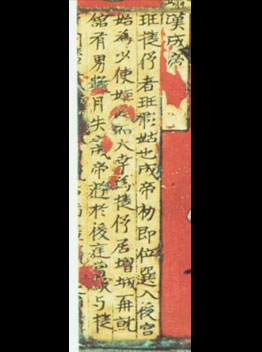 漢成帝
班捷伃者班彪姑也成帝初即位選入後宮
始為少使而大幸為捷伃居增城再就
舘有男數月失成帝遊於後庭嘗欲与捷